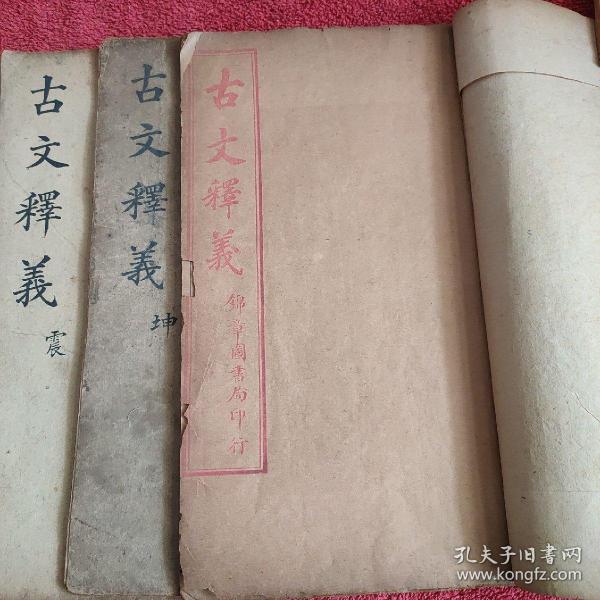 古文釋義
錦章圖書局印行
古文釋義
坤
古文釋義
震
孔夫子旧书网
www.kongfz.com